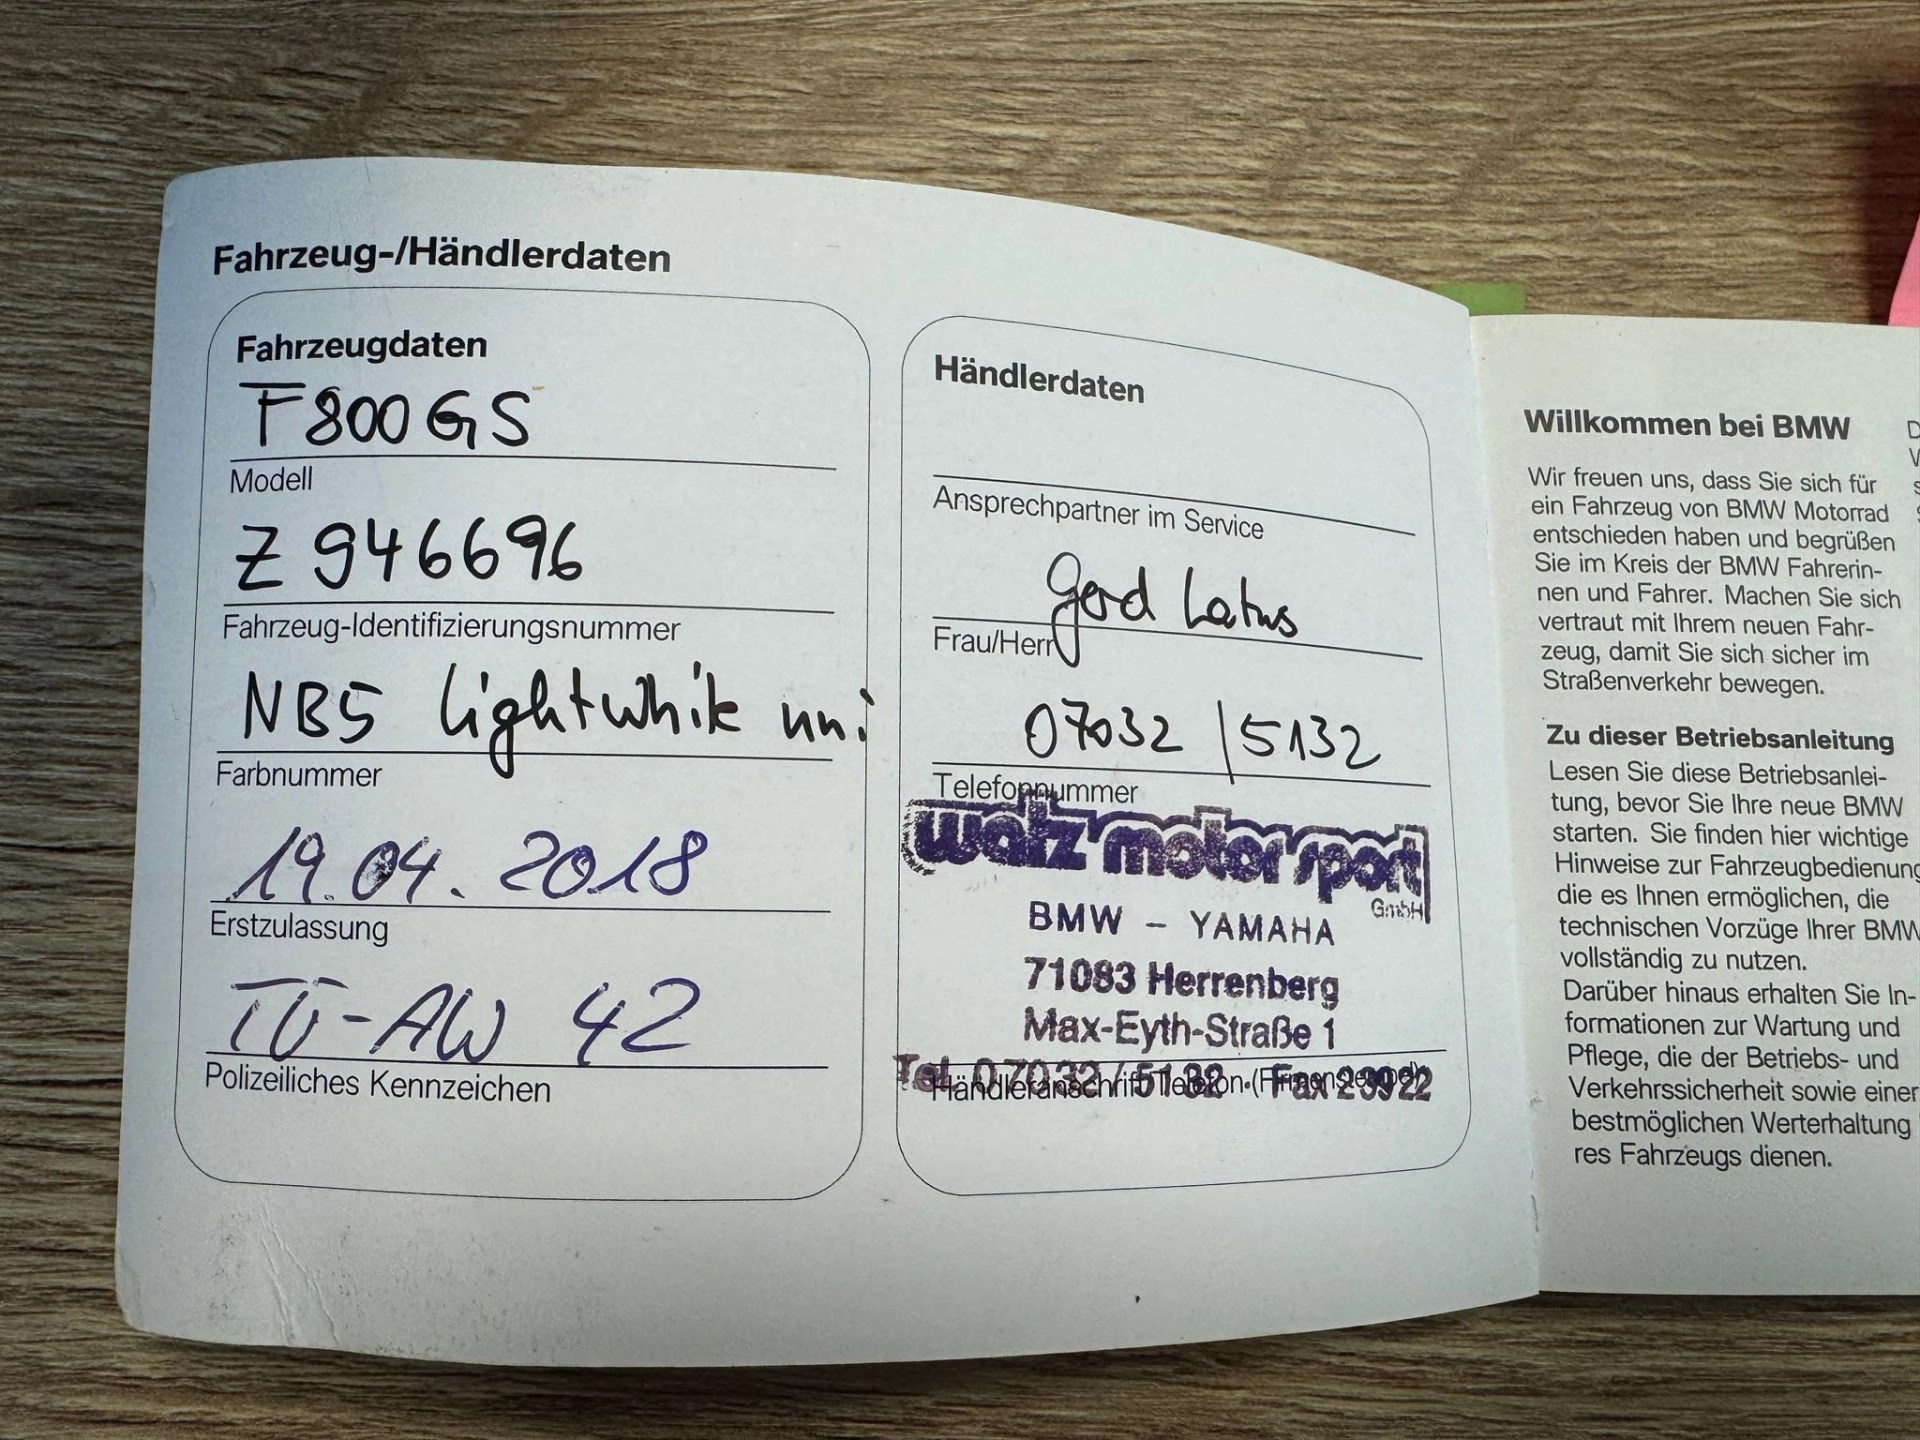 Fahrzeug-/Händlerdaten
Fahrzeugdaten
F800GS
Modell
Z 946696
Fahrzeug-Identifizierungsnummer
NB5 Lightwhite uni
Farbnummer
19.04.2018
Erstzulassung
TÜ-AW 42
Polizeiliches Kennzeichen
Händlerdaten
Ansprechpartner im Service
Gerd Latus
Frau/Herr
07032 / 5132
Telefonnummer
walz motorsport
GmbH
BMW - YAMAHA
71083 Herrenberg
Max-Eyth-Straße 1
Tel. 07032 / 5132 · Fax 23922
Händleranschrift/Telefon (Firmenstempel)
Willkommen bei BMW
Wir freuen uns, dass Sie sich für
ein Fahrzeug von BMW Motorrad
entschieden haben und begrüßen
Sie im Kreis der BMW Fahrerin-
nen und Fahrer. Machen Sie sich
vertraut mit Ihrem neuen Fahr-
zeug, damit Sie sich sicher im
Straßenverkehr bewegen.
Zu dieser Betriebsanleitung
Lesen Sie diese Betriebsanlei-
tung, bevor Sie Ihre neue BMW
starten. Sie finden hier wichtige
Hinweise zur Fahrzeugbedienung
die es Ihnen ermöglichen, die
technischen Vorzüge Ihrer BMW
vollständig zu nutzen.
Darüber hinaus erhalten Sie In-
formationen zur Wartung und
Pflege, die der Betriebs- und
Verkehrssicherheit sowie einer
bestmöglichen Werterhaltung
res Fahrzeugs dienen.